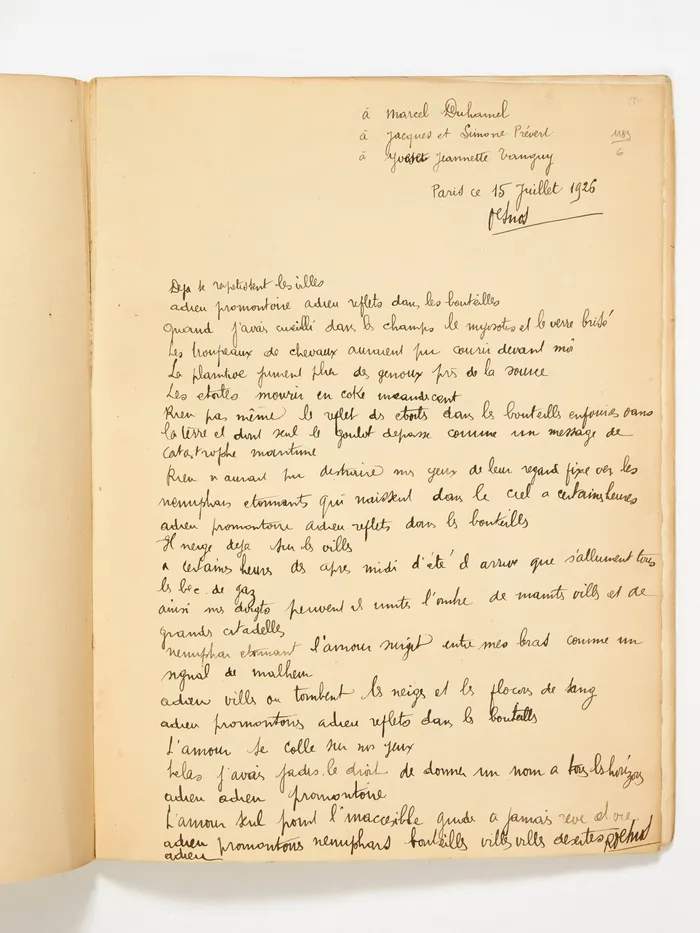 à Marcel Duhamel
à Jacques et Simone Prévert
à Jeannette Tanguy
Paris ce 15 Juillet 1926
Desnos
Deja se rapetissent les villes
adieu promontoire adieu reflets dans les bouteilles
Quand j'avais cueilli dans les champs le myosotis et le verre brisé
Les troupeaux de chevaux auraient pu courir devant moi
La plaintive jument plier des genoux près de la source
Les etoiles mourir en coke incandescent
Rien pas même le reflet des etoiles dans les bouteilles enfouies dans
la terre et dont seul le goulot depasse comme un message de
catastrophe maritime
Rien n'aurait pu distraire mes yeux de leur regard fixe vers les
nenuphars etonnants qui naissent dans le ciel a certaines heures
adieu promontoire adieu reflets dans les bouteilles
Il neige deja sur les villes
a certaines heures des apres midi d'été il arrive que s'allument tous
les bec de gaz
ainsi mes doigts peuvent ils imiter l'ombre de maints villes et de
grandes citadelles
nenuphar etonnant l'amour surgit entre mes bras comme un
signal de malheur
adieu villes ou tombent les neiges et les flocons de sang
adieu promontoires adieu reflets dans les bouteilles
L'amour se colle sur nos yeux
helas j'avais jadis le droit de donner un nom a tous les horizons
adieu adieu promontoire
L'amour seul point l'inaccessible guide a jamais reve et vie
adieu promontoires nenuphars bouteilles villes villes desertes Desnos
adieu